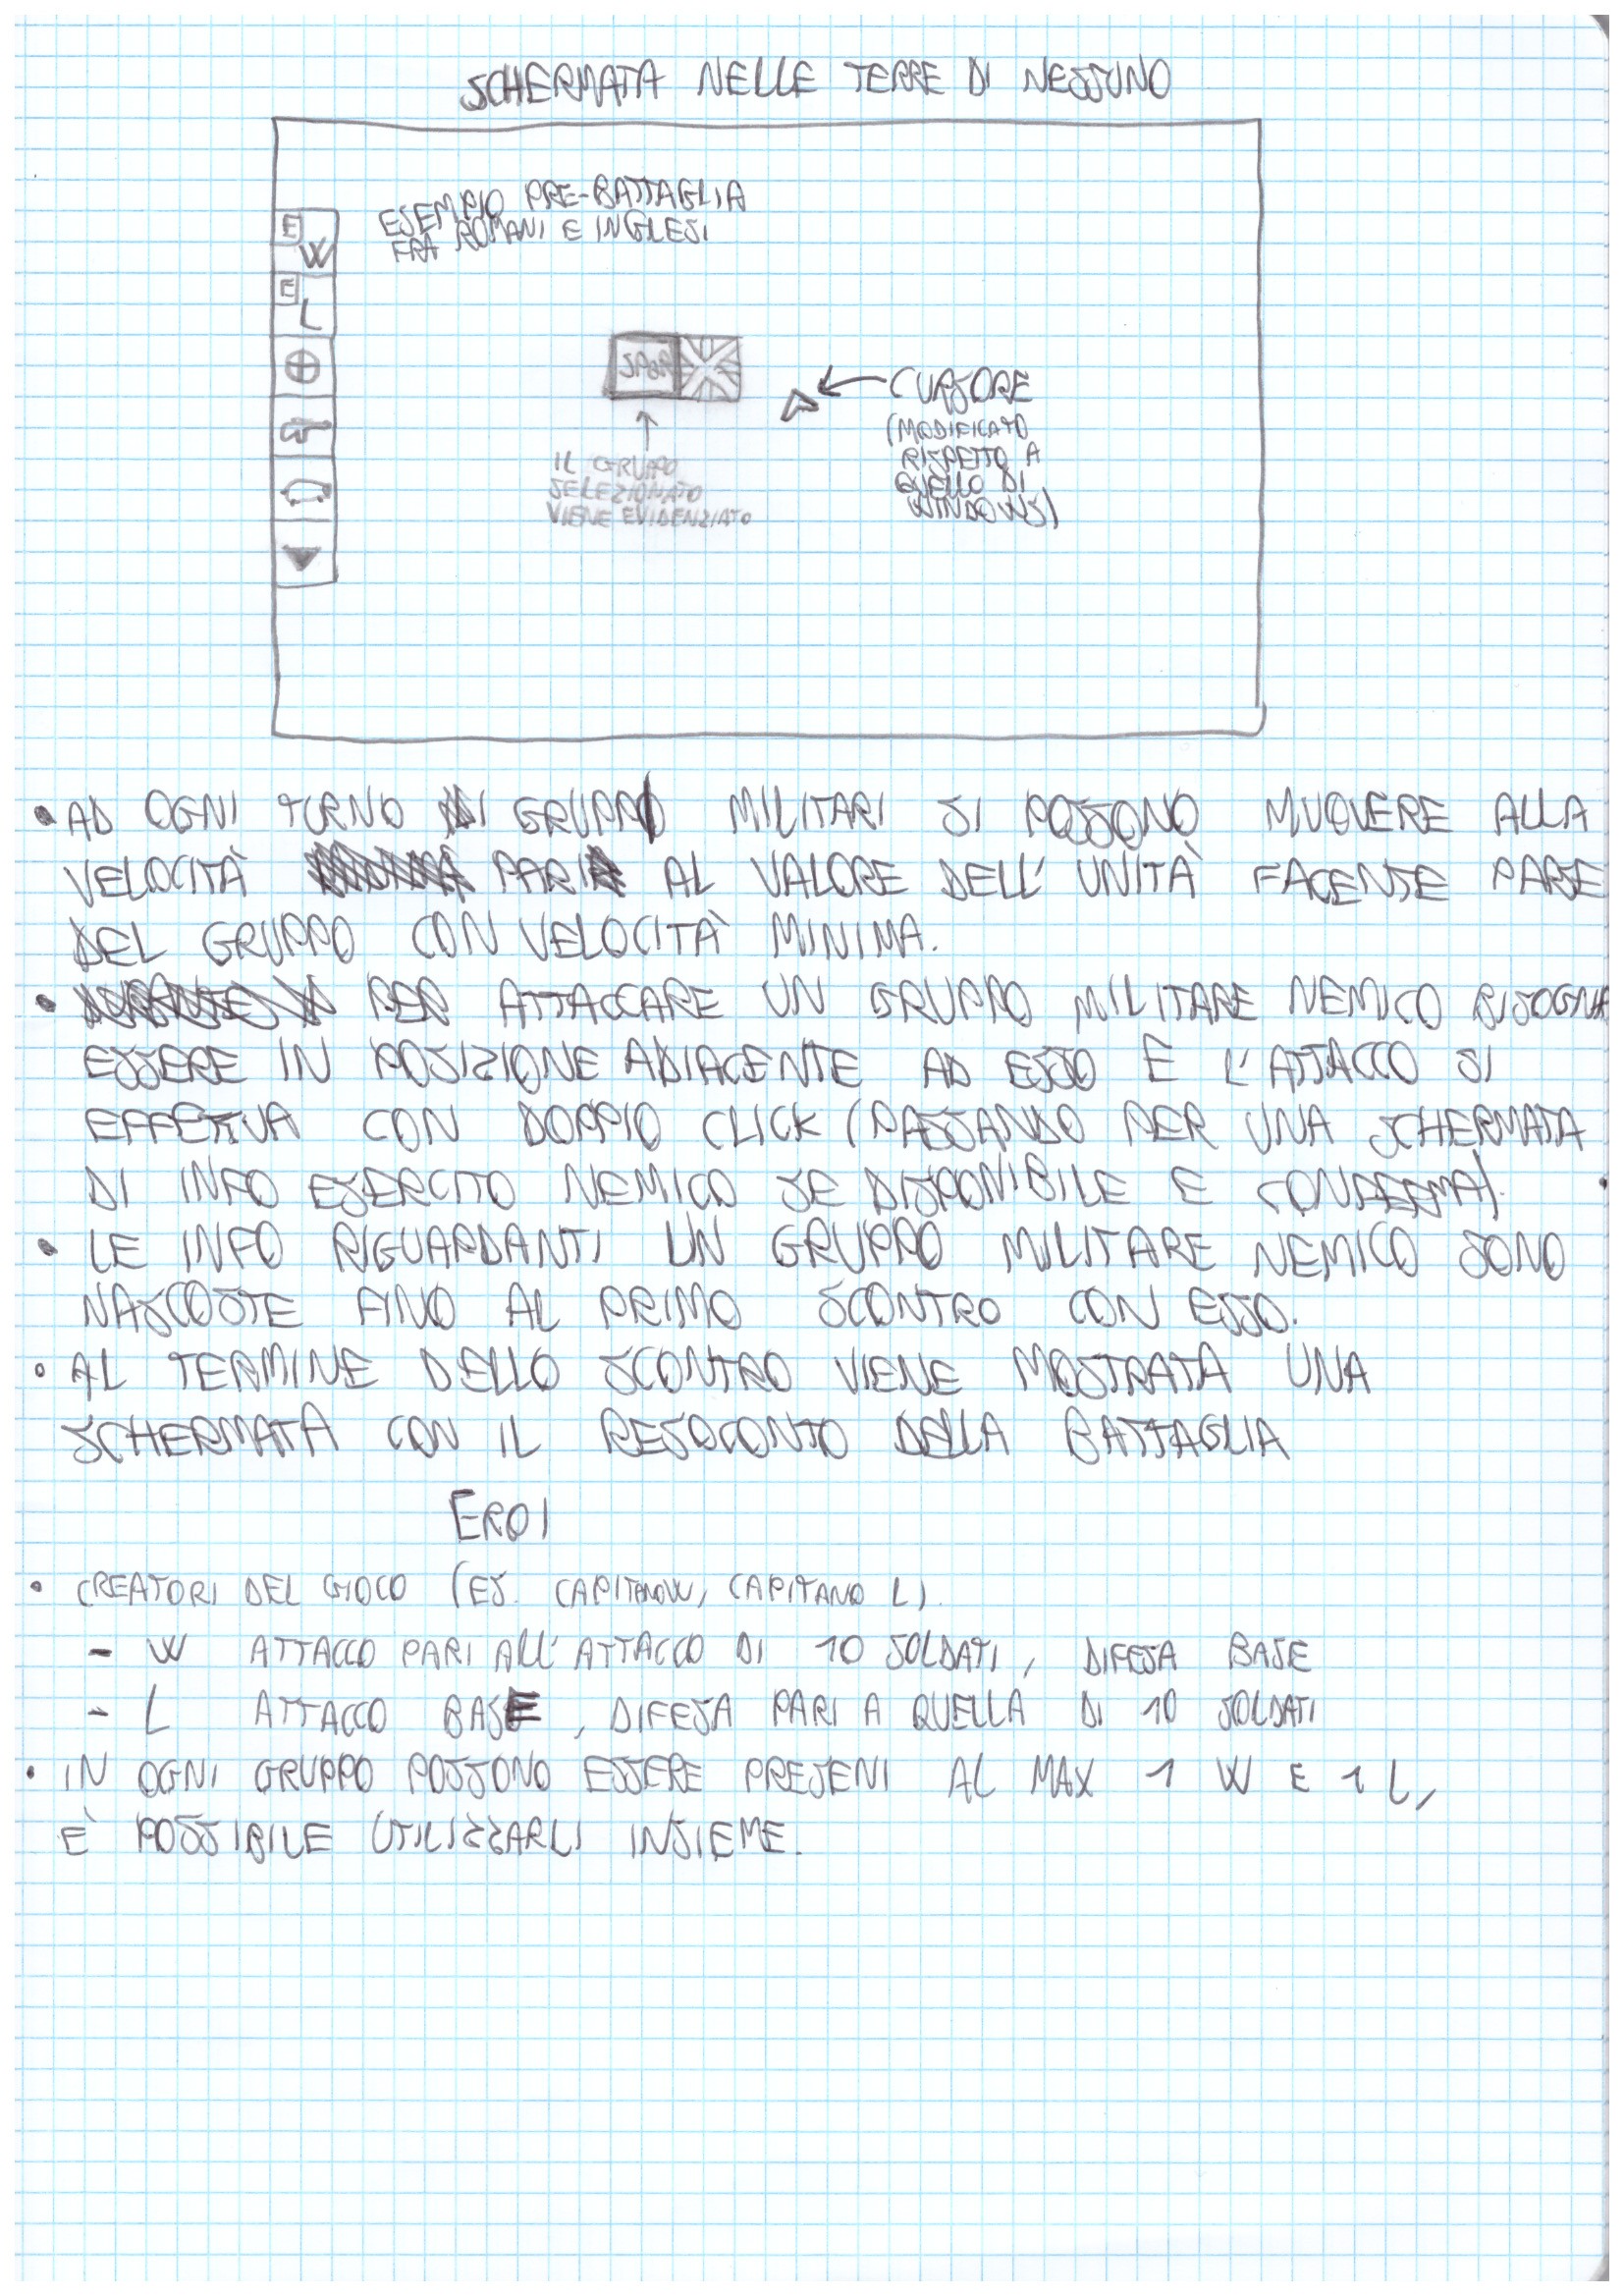 SCHERMATA NELLE TERRE DI NESSUNO
ESEMPIO PRE-BATTAGLIA
FRA ROMANI E INGLESI
E
W
E
L
SPQR
CURSORE
(MODIFICATO
RISPETTO A
QUELLO DI
WINDOWS)
IL GRUPPO
SELEZIONATO
VIENE EVIDENZIATO
• AD OGNI TURNO I GRUPPI MILITARI SI POSSONO MUOVERE ALLA
VELOCITÀ PARI AL VALORE DELL'UNITÀ FACENTE PARTE
DEL GRUPPO CON VELOCITÀ MINIMA.
• PER ATTACCARE UN GRUPPO MILITARE NEMICO BISOGNA
ESSERE IN POSIZIONE ADIACENTE AD ESSO E L'ATTACCO SI
EFFETTUA CON DOPPIO CLICK (PASSANDO PER UNA SCHERMATA
DI INFO ESERCITO NEMICO SE DISPONIBILE E CONFERMA).
• LE INFO RIGUARDANTI UN GRUPPO MILITARE NEMICO SONO
NASCOSTE FINO AL PRIMO SCONTRO CON ESSO.
• AL TERMINE DELLO SCONTRO VIENE MOSTRATA UNA
SCHERMATA CON IL RESOCONTO DELLA BATTAGLIA
EROI
• CREATORI DEL GIOCO (ES. CAPITANO W, CAPITANO L).
- W ATTACCO PARI ALL'ATTACCO DI 10 SOLDATI, DIFESA BASE
- L ATTACCO BASE, DIFESA PARI A QUELLA DI 10 SOLDATI
• IN OGNI GRUPPO POSSONO ESSERE PRESENI AL MAX 1 W E 1 L,
È POSSIBILE UTILIZZARLI INSIEME.